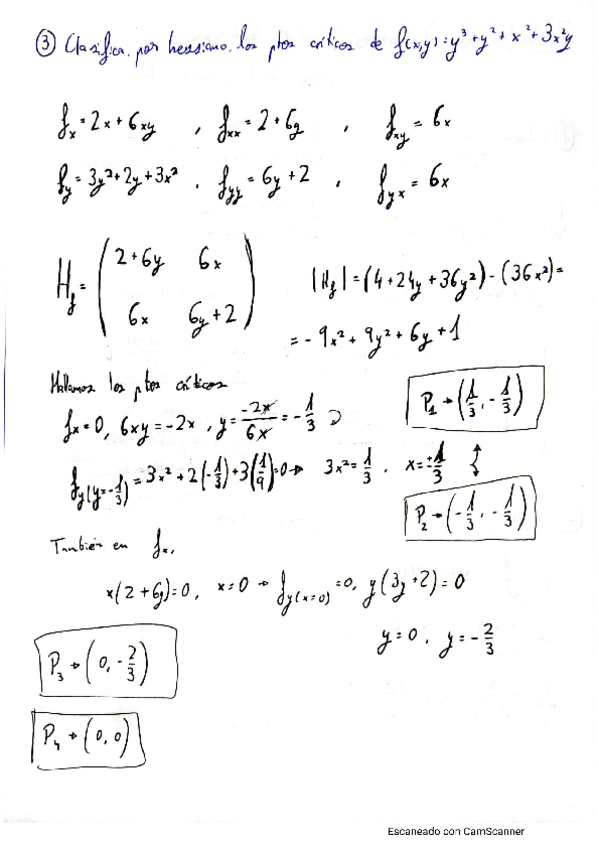 ③ Clasifica, por hessiano, los ptos críticos de f(x,y)=y³+y²+x²+3x²y
fx = 2x + 6xy , fxx = 2 + 6y , fxy = 6x
fy = 3y² + 2y + 3x² , fyy = 6y + 2 , fyx = 6x
Hf = ( 2+6y 6x
6x 6y+2 )
|Hf| = (4 + 24y + 36y²) - (36x²) =
= - 9x² + 9y² + 6y + 1
Hallamos los ptos críticos
fx = 0, 6xy = -2x , y = -2x/6x = -1/3
P1 → (1/3, -1/3)
fy(y=-1/3) = 3x² + 2(-1/3) + 3(1/9) = 0 → 3x² = 1/3 , x = ±1/3
P2 → (-1/3, -1/3)
También en fx,
x(2+6y)=0, x=0 → fy(x=0) = 0, y(3y+2)=0
y=0 , y = -2/3
P3 → (0, -2/3)
P4 → (0,0)
Escaneado con CamScanner